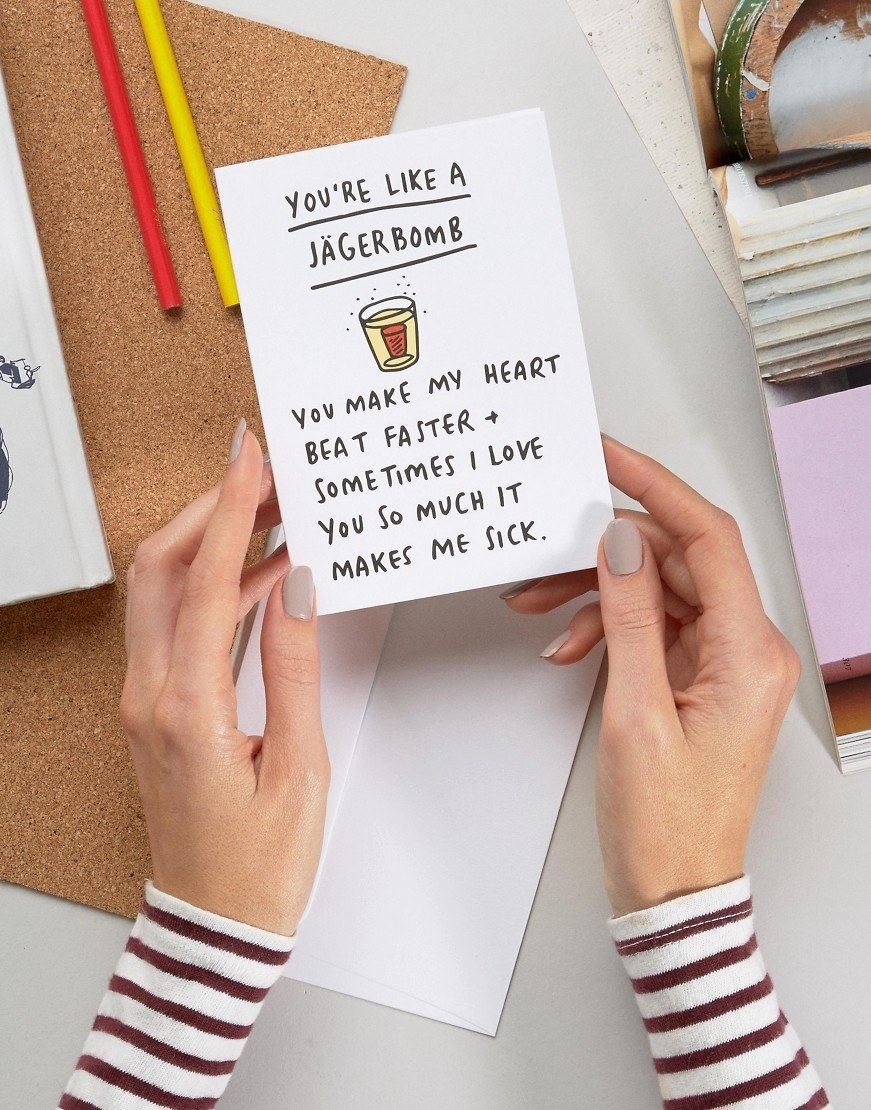 YOU'RE LIKE A
JÄGERBOMB
YOU MAKE MY HEART
BEAT FASTER +
SOMETIMES I LOVE
YOU SO MUCH IT
MAKES ME SICK.
307